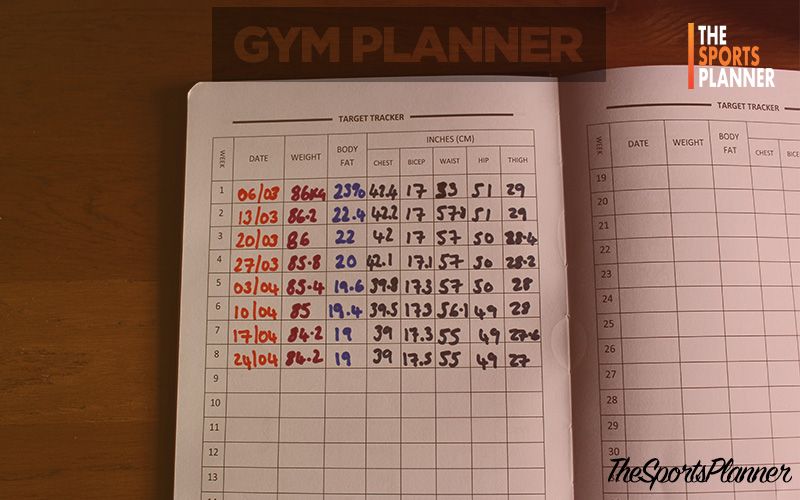 GYM PLANNER
THE
SPORTS
PLANNER
TARGET TRACKER
WEEK DATE WEIGHT BODY FAT INCHES (CM)
CHEST BICEP WAIST HIP THIGH
1 06/03 86kg 23% 42.4 17 51 29
2 13/03 86.2 22.4 42.2 17 51 29
3 20/03 86 22 42 17 57 50 28.4
4 27/03 85.8 20 42.1 17.1 57 50 28.2
5 03/04 85.4 19.6 39.8 17.3 57 50 28
6 10/04 85 19.4 39.5 56.1 49 28
7 17/04 84.2 19 39 17.3 55 49 27.6
8 24/04 84.2 19 39 17.5 55 49 27
9
10
11
12
13
TARGET TRACKER
WEEK DATE WEIGHT BODY FAT
CHEST BICE
19
20
21
22
23
24
25
26
27
28
29
30
TheSportsPlanner